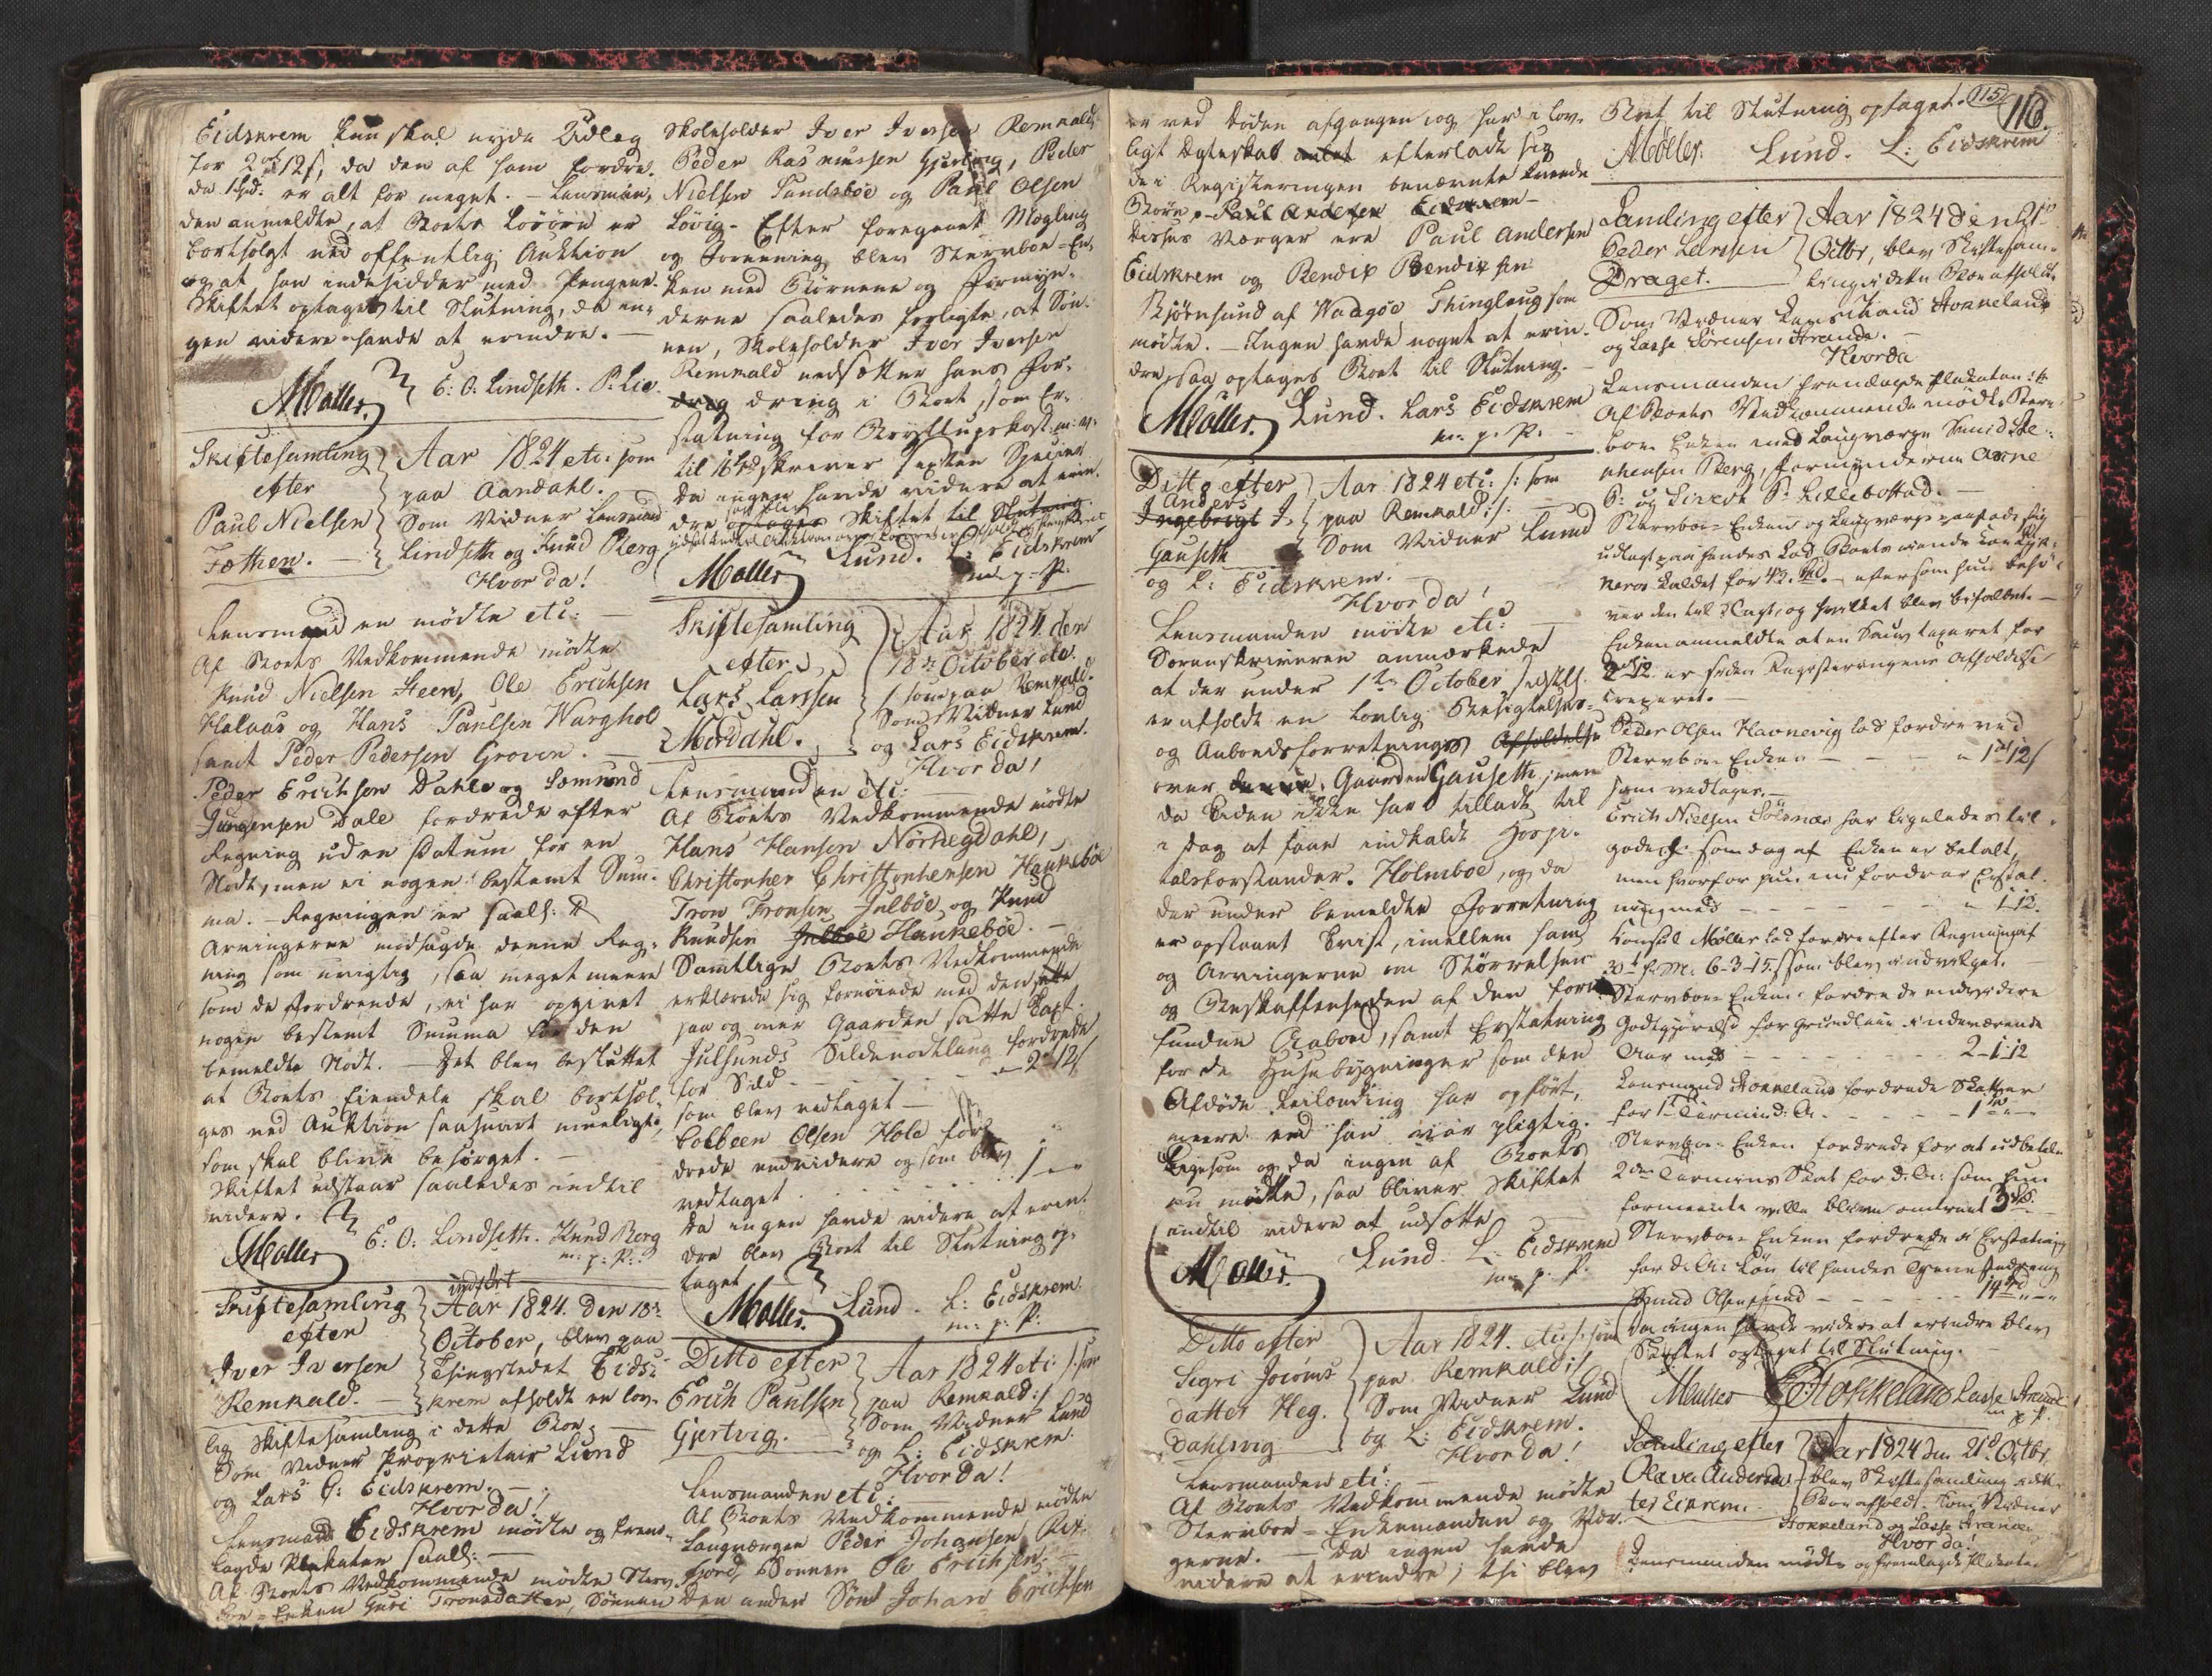 Eidskrem kun skal nyde Udlæg
for 2 ort 12 s, da den af ham fordre-
de 1 Spd. er alt for meget. — Lensman-
den anmeldte, at Boets Løsøre er
bortsolgt ved offentlig Auktion
og at han indesidder med Pengene.
Skiftet optages til Slutning, da in-
gen videre havde at erindre. —
Møller. E: O. Lindseth. P: Lie.
Skiftesamling
efter
Paul Nielsen
Fæthen. —
Aar 1824 etc: som
paa Aandahl. —
Som Vidner Lensmand
Lindseth og Knud Berg
Hvor da!
Lensmanden mødte etc: —
Af Boets Vedkommende mødte
Knud Nielsen Steen, Ole Erichsen
Halaas og Hans Paulsen Varghol
samt Peder Pedersen Groven. —
Peder Erichsen Dahle og Sæmund
Jørgensen Dale fordrede efter
Regning uden Datum for en
Nodt, men ei nogen bestemt Sum-
ma. — Regningen er saal:
Arvingerne modsagde denne Reg-
ning som urigtig, saa meget meere
som de Fordrende, ei har opgivet
nogen bestemt Summa for den
bemeldte Nodt. — Det blev besluttet
at Boets Eiendele skal bortsæl-
ges ved Auktion saasnart mueligt
som skal blive besørget. —
Skiftet udstaar saaledes indtil
videre.
Møller E: O: Lindseth. Knud Berg
m: p: P:
Skiftesamling
efter
Iver Iversen
Remkald. —
indført
Aar 1824. den 18de
October, blev paa
Thingstedet Eids-
krem afholdt en lov-
lig Skiftesamling i dette Boe. —
Som Vidner Proprietair Lund
og Lars G: Eidskrem. —
Hvor da!
Lensmand Eidskrem mødte og frem-
lagde Plakaten saal: —
Af Boets Vedkommende mødte Sterv-
boe-Enken Guri Tronsdatter, Sønnen
Skoleholder Iver Iversen Remkald
Peder Rasmussen Gjertvig, Peder
Nielsen Sandsbøe og Paul Olsen
Løvig. — Efter foregaaet Mægling
og Forening blev Stervboe-En-
ken med Børnene og Formyn-
derne saaledes forligte, at Søn-
nen, Skoleholder Iver Iversen
Remkald nedsætter hans For-
dring i Boet, som Er-
statning for Bryllupskost m: v:
til 16 Spd skriver sexten Species
Da ingen havde videre at erin-
dre optages Skiftet til Slutning.
Møller Lund. L: Eidskrem
m. p. P.
Skiftesamling
efter
Lars Larsen
Mordahl.
Aar 1824 den
18de October etc.
/: som paa Remkald.
Som Vidner Lund
og Lars Eidskrem.
Hvor da!
Lensmanden etc: —
Af Boets Vedkommende mødte
Hans Hansen Nørhegdahl,
Christopher Christophersen Haukebøe
Tron Tronsen Julbøe og Knud
Knudsen Julbøe Haukebøe. —
Samtlige Boets Vedkommende
erklærede sig fornøiede med den
paa og over Gaarden satte Taxt.
Julsunds Sildenodtlaug fordrede
for Sild - - - - 2 ort 12 s
som blev vedtaget —
Colbeen Olsen Hole for-
drede endvidere og som blev
vedtaget - - - - 1 - "
Da ingen havde videre at erin-
dre blev Boet til Slutning op-
taget
Møller. Lund. L: Eidskrem.
m: p: P:
Ditto efter
Erich Paulsen
Gjertvig. —
Aar 1824 etc: /: som
paa Remkald :/
Som Vidner Lund
og L: Eidskrem.
Hvor da!
Lensmanden etc: —
Af Boets Vedkommende mødte
Laugværgen Peder Johansen
fjord, Sønnen Ole Erichsen,
den anden Søn Johan Erichsen
115
116.
er ved Døden afgangen og har i lov-
ligt Ægteskab efterladt sig
de i Registeringen benævnte
Børn — Paul Andersen Eidskrem —
Disses Værger ere Paul Andersen
Eidskrem og Bendix Bendixsen
Bjørnsund af Waagøe Thinglaug som
mødte. — Ingen havde noget at erin-
dre, saa optages Boet til Slutning. —
Møller. Lund. Lars Eidskrem
m. p. P. —
Ditto efter
Anders
Ingebrigt I.
Gauseth
Aar 1824 etc: /: som
paa Remkald :/. —
Som Vidner Lund
og L: Eidskrem. —
Hvor da!
Lensmanden mødte etc: —
Sorenskriveren anmærkede
at der under 1ste October sidstl.
er afholdt en lovlig Besigtelses-
og Aaboedsforretnings Afholdelse
over Gaarden Gauseth, men
da Tiden ikke har tilladt til
i Dag at faae indkaldt Hospi-
talsforstander Holmboe, og da
der under bemeldte Forretning
er opstaaet Tvist, imellem ham
og Arvingerne om Størrelsen
og Beskaffenheden af den fore-
fundne Aaboed, samt Erstatning
for de Huusebygninger som den
Afdøde Leilending har opført,
meere end han var pligtig.
Ligesom og da ingen af Boets
nu mødte, saa bliver Skiftet
indtil videre at udsætte
Møller. Lund. L: Eidskrem
m. p. P.
Ditto efter
Sigri Joerns
datter Heg-
dahlsvig
Aar 1824. etc: /: som
paa Remkald :/
Som Vidner Lund
og L: Eidskrem.
Hvor da!
Lensmanden etc: —
Af Boets Vedkommende mødte
Stervboe-Enkemanden og Vær-
gerne. — Da ingen havde
videre at erindre, thi blev
Boet til Slutning optaget.
Møller. Lund. L: Eidskrem
Samling efter
Peder Larssen
Draget. —
Aar 1824 den 21de
Octbr, blev Skiftesam-
ling i dette Boe afholdt
Som Vidner Lensmand Stokkeland
og Lasse Sørensen Strande. —
Hvorda
Lensmanden fremlagde Plakaten
Af Boets Vedkommende mødte Sterv-
boe Enken med Laugværge
Berg, Formynderne Arne
P: og Sivert P: Lillebostad. —
Stervboe-Enken og Laugværge paastode sig
udlagt paa hendes Lod Boets eiende
kaldet for 43 Spd. — eftersom hun behø-
ver den til Brugt, og hvilket blev bifaldet. —
Enken anmeldte at en Sau taxeret for
2 ort 12. er siden Registeringens Afholdelse
creperet. —
Peder Olsen Havnevig lod fordre ved
Stervboe Enken — — — 1 ort 12 s
som vedtages. —
Erich Nielsen Sølsnes har ligeledes til-
gode som dog af Enken er betalt,
men hvorfor hun nu fordrer Erstat-
ning med — — — — 1 - 12.
Konsul Møller lod fordre efter Regning af
30te f: M: 6-3-15. som blev indvilget. —
Stervboe-Enken fordrede endvidere
Godtgjørelse for Grundleie indeværende
Aar med — — — 2 - 1 - 12
Lensmand Stokkeland fordrede Skatter
for 1ste Termin d: A. - - - 1 " —
Stervboe-Enken fordrede for at udbetale
2den Termins Skat for d: A: som hun
formeente ville blive omtrent 3 Spd.
Stervboe Enken fordrede i Erstatning
for d: A: Løn til hendes Tjenestedreng
Knud Olsen - - - - 14 Spd " — "
Da ingen havde videre at erindre blev
Skiftet optaget til Slutning. —
Møller Stokkeland Lasse Strande
m p P.
Samling efter
Olava Andersdat-
ter Eikrem. —
Aar 1824 den 21de Octbr,
blev Skiftesamling i dette
Boe afholdt. Som Vidner
Stokkeland og Lasse Strande.
Hvor da.
Lensmanden mødte og fremlagde Plakaten